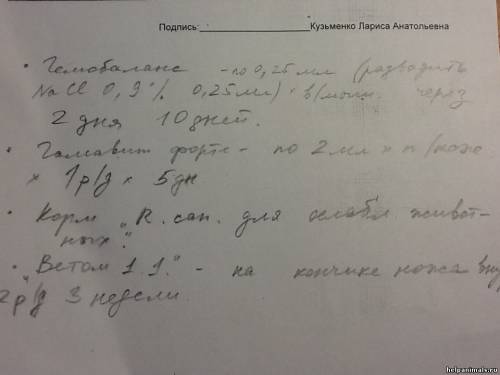 Подпись:____________________Кузьменко Лариса Анатольевна
• Гемобаланс - по 0,25 мл (разводить
NaCl 0,9% 0,25 мл) в/мыш. через
2 дня 10 дней.
• Гамавит форте - по 2 мл × п/коже
× 1 р/д × 5 дн
• Корм "R. сан. для ослабл. живот-
ных".
• "Ветом 1.1." - на кончике ножа вну
2 р/д 3 недели.
www.helpanimals.ru